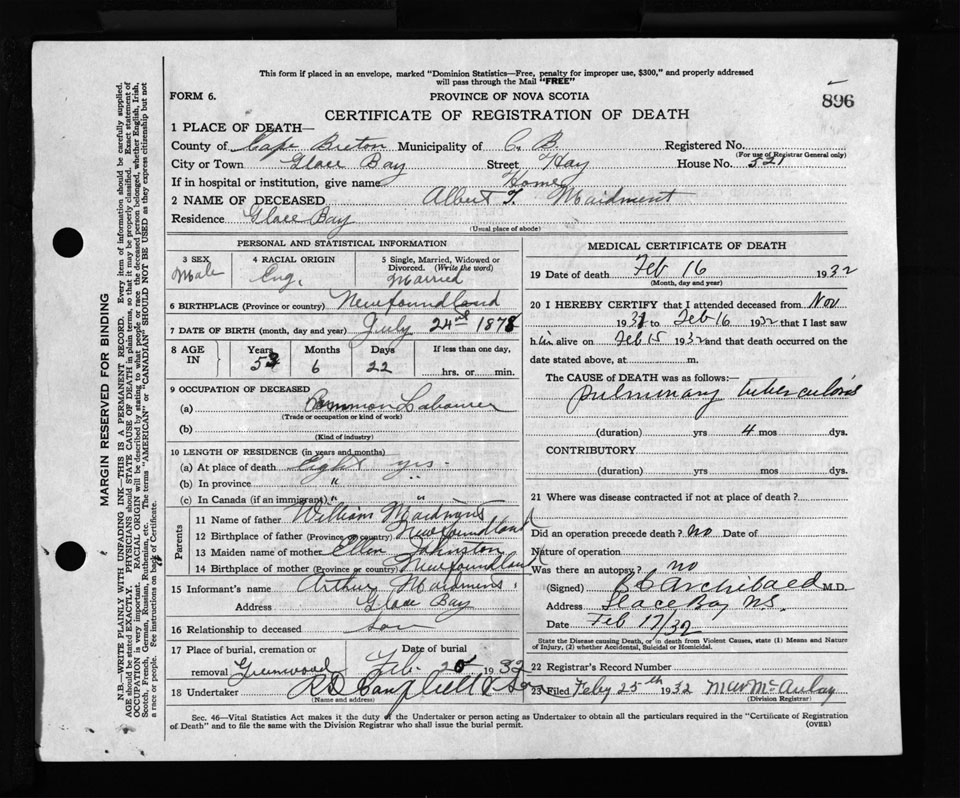 This form if placed in an envelope, marked "Dominion Statistics—Free, penalty for improper use, $300," and properly addressed
will pass through the Mail "FREE"
FORM 6.
PROVINCE OF NOVA SCOTIA
896
CERTIFICATE OF REGISTRATION OF DEATH
1 PLACE OF DEATH—
County of Cape Breton Municipality of C. B. Registered No.
(For use of Registrar General only)
City or Town Glace Bay Street Hay House No. 521
If in hospital or institution, give name Home
2 NAME OF DECEASED Albert T. Maidment
Residence Glace Bay
(Usual place of abode)
PERSONAL AND STATISTICAL INFORMATION
3 SEX Male
4 RACIAL ORIGIN Eng.
5 Single, Married, Widowed or
Divorced. (Write the word)
Married
6 BIRTHPLACE (Province or country) Newfoundland
7 DATE OF BIRTH (month, day and year) July 24 1878
8 AGE IN
Years Months Days If less than one day,
53 6 22 hrs. or min.
9 OCCUPATION OF DECEASED
(a) Common Labourer
(Trade or occupation or kind of work)
(b)
(Kind of industry)
10 LENGTH OF RESIDENCE (in years and months)
(a) At place of death Eight yrs.
(b) In province " "
(c) In Canada (if an immigrant) " "
Parents
11 Name of father William Maidment
12 Birthplace of father (Province or country) Newfoundland
13 Maiden name of mother Ellen Johnston
14 Birthplace of mother (Province or country) Newfoundland
15 Informant's name Arthur Maidment
Address Glace Bay
16 Relationship to deceased son
17 Place of burial, cremation or Date of burial
removal Greenwood Feb. 20 1932
18 Undertaker R D Campbell & Son
(Name and address)
MEDICAL CERTIFICATE OF DEATH
19 Date of death Feb 16 1932
(Month, day and year)
20 I HEREBY CERTIFY that I attended deceased from Nov
1931 to Feb 16 1932 that I last saw
him alive on Feb 15 1932 and that death occurred on the
date stated above, at m.
The CAUSE OF DEATH was as follows:
pulmonary tuberculosis
(duration) yrs 4 mos dys.
CONTRIBUTORY
(duration) yrs. mos. dys.
21 Where was disease contracted if not at place of death?
Did an operation precede death? no Date of
Nature of operation
Was there an autopsy? no
(Signed) Archibald M.D.
Address Glace Bay N.S.
Date Feb 17/32
State the Disease causing Death, or in death from Violent Causes, state (1) Means and Nature
of Injury, (2) whether Accidental, Suicidal or Homicidal.
22 Registrar's Record Number
23 Filed Feby 25th 1932 McAulay
(Division Registrar)
Sec. 46—Vital Statistics Act makes it the duty of the Undertaker or person acting as Undertaker to obtain all the particulars required in the "Certificate of Registration
of Death" and to file the same with the Division Registrar who shall issue the burial permit.
(OVER)
MARGIN RESERVED FOR BINDING
N.B.—WRITE PLAINLY WITH UNFADING INK—THIS IS A PERMANENT RECORD. Every item of information should be carefully supplied.
AGE should be stated EXACTLY. PHYSICIANS should STATE CAUSE OF DEATH in plain terms, so that it may be properly classified. Exact statement of
OCCUPATION is very important. RACIAL ORIGIN will be described by stating to what people or race the deceased person belonged, whether English, Irish,
Scotch, French, German, Russian, Ruthenian, etc. The terms "AMERICAN" or "CANADIAN" SHOULD NOT BE USED as they express citizenship but not
a race or people. See instructions on back of Certificate.